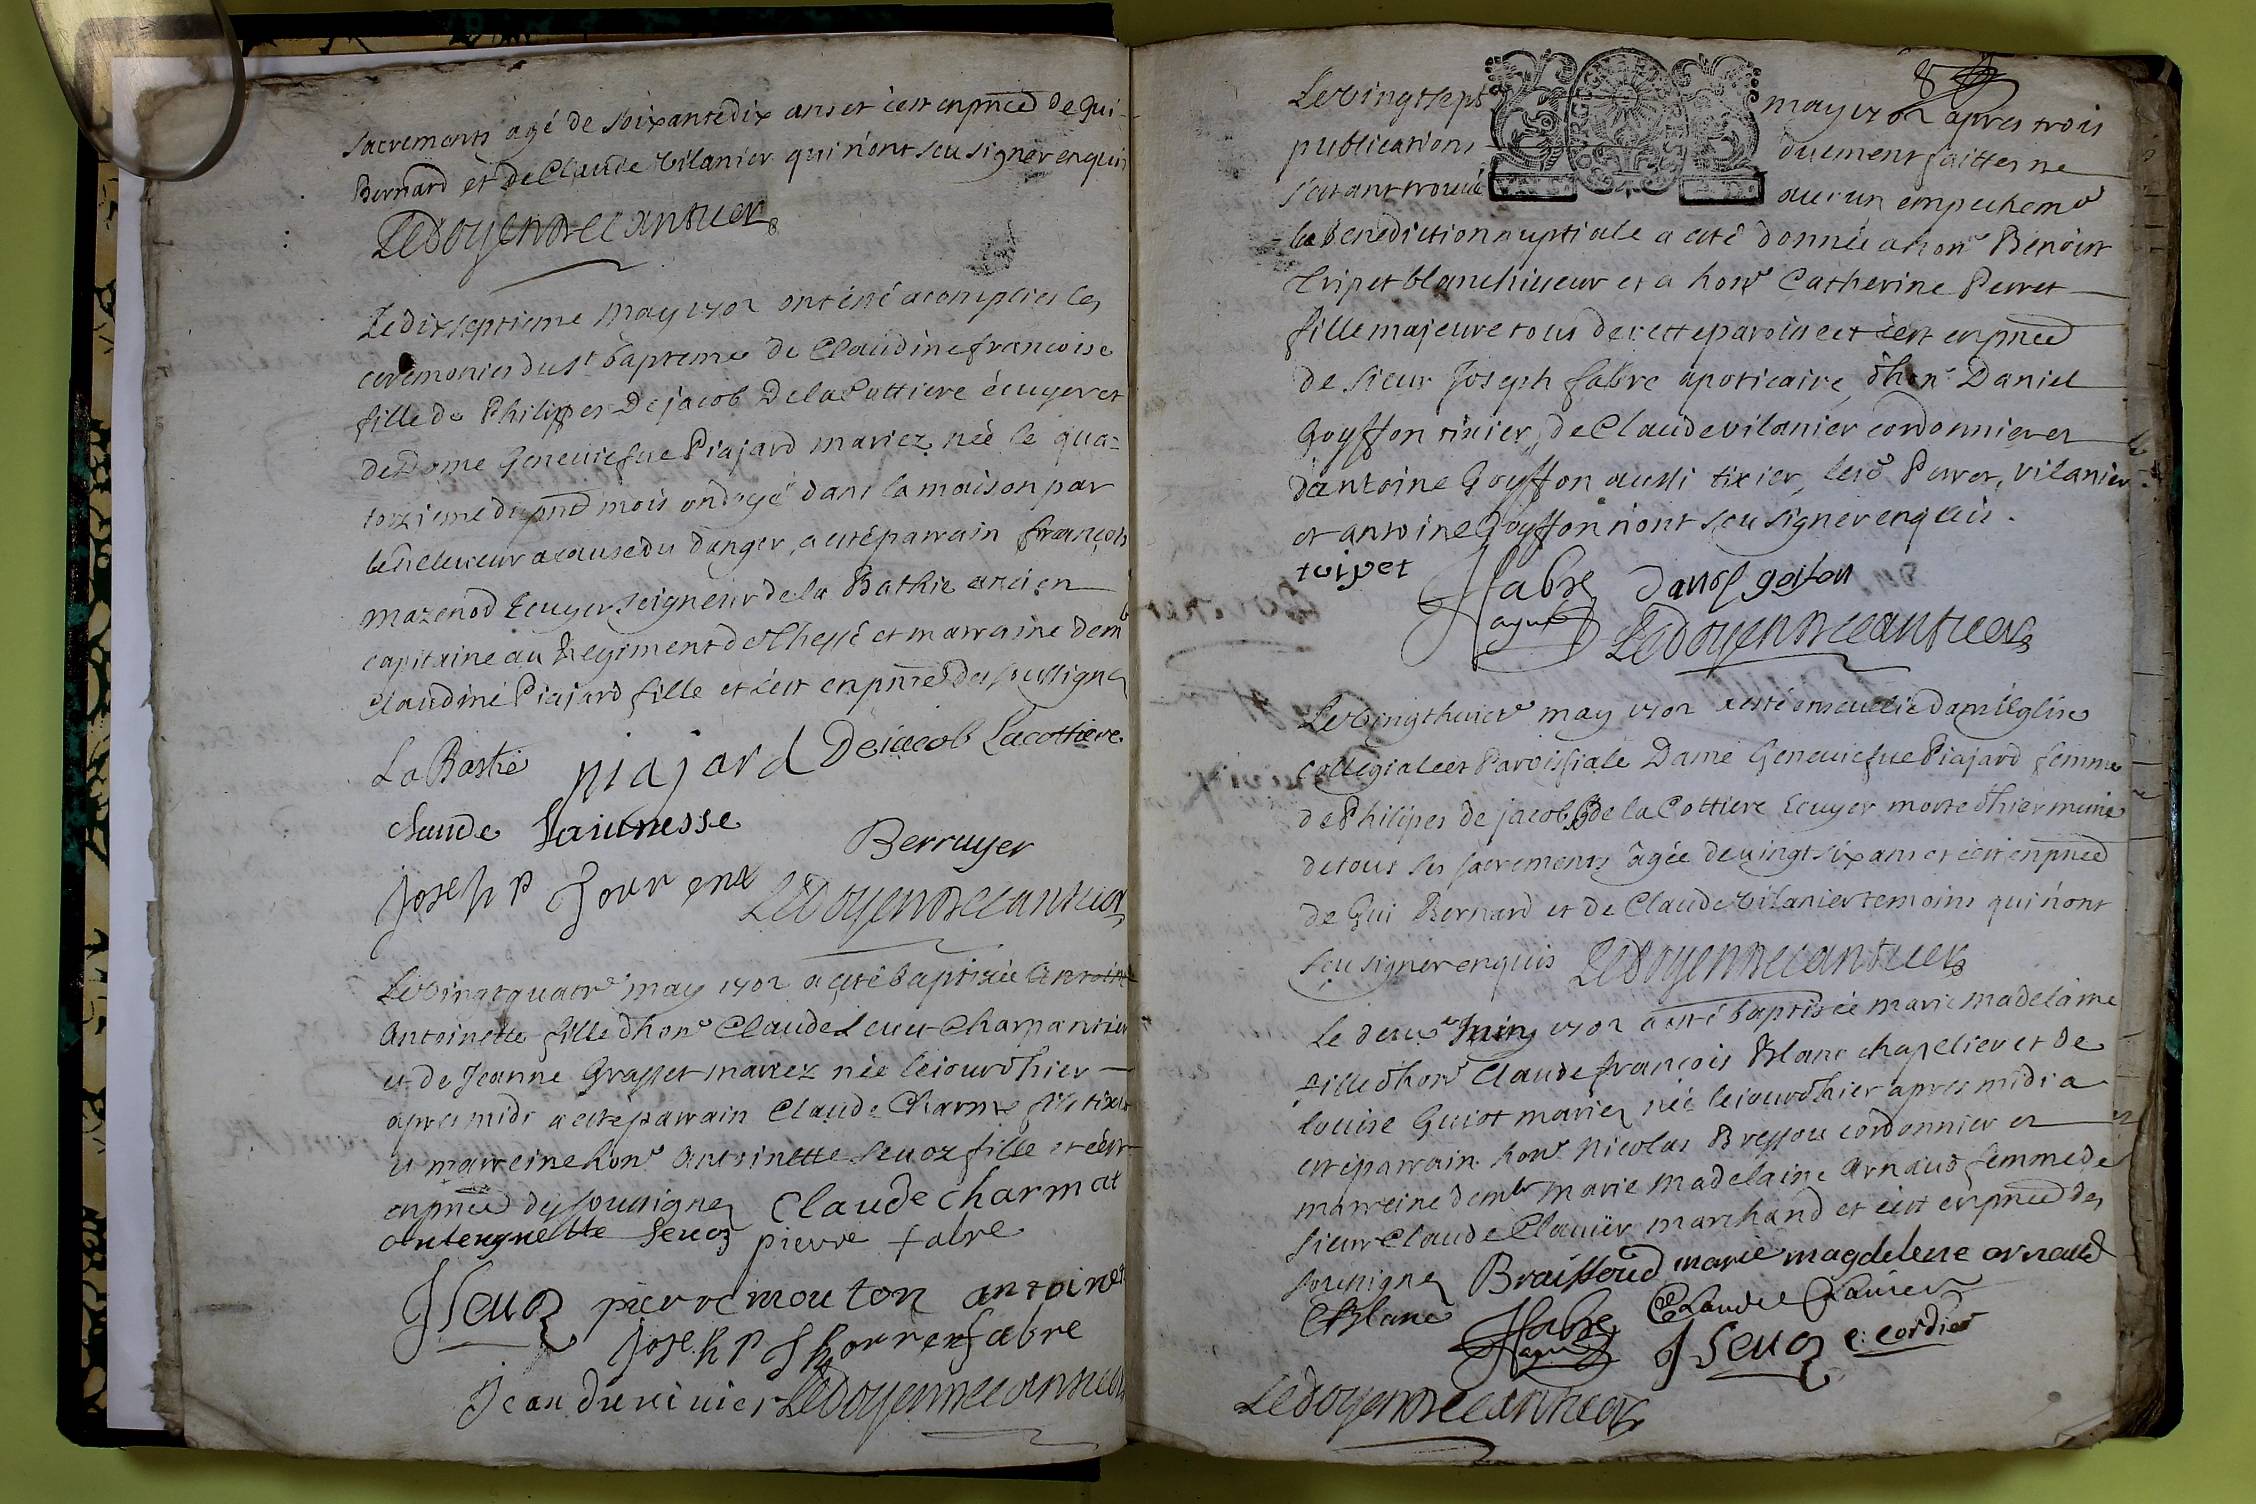 sacrements agé de soixante dix ans et c'est en pnce de Gui
Bernard et de Claude Vilanier qui n'ont sçu signer enquis
Ledoyen
Le dix septieme may 1702 ont été acomplies les
ceremonies du st bapteme de Claudine francoise
fille de Philippes Dejacob De la Cottiere écuyer et
de Dame Geneviefve Piajard mariez née le qua=
torzieme du pnt mois ondoyé dans la maison par
a cause du danger, a esté parrain françois
Mazenod Ecuyer seigneur de la Bathie ancien
capitaine au Regiment de Thessé et marraine demlle
Claudine Piajard fille et c'est en pnce des soussignez
La Bastie piajard Dejacob Lacottiere
Claude Jaiunesse
Berruyer
Joseph Ledoyen
Le vingt quatre may 1702 a esté baptisée
Antoinette fille d'hone Claude Seuet Charpantier
et de Jeanne Grasset mariez née le jour d'hier
apres midi a esté parrain Claude Charme fils tixier
et marreine hone Antoinette Seuoz fille et c'est
en pnce des soussignez Claude charmat
anteugnette Seuoz pierre fabre
J Seuoz pierre mouton antoine
Joseph fabre
Jean duvivier Ledoyen
8
Le vingt sept may 1702 apres trois
publications duement faittes ne
s'etant trouvé aucun empechemt
la benediction nuptiale a esté donnée a hone Benoist
Tripet blanchisseur et a hone Catherine Perret
fille majeure tous de cette paroisse et c'est en pnce
de sieur Joseph fabre apoticaire, d'hone Daniel
Goyffon tixier, de Claude vilanier cordonnier et
d'antoine Goyffon aussi tixier, lesd Perret, vilanier
et antoine Goyffon n'ont sçu signer enquis.
tripet Jfabre daniel goifon
Ledoyen
Le vingt huict may 1702 a esté ensevelie dans l'Eglise
Collegiale et Paroissiale Dame Geneviefve Piajard femme
de Philipes de jacob de la Cottiere Ecuyer morte d'hier munie
de tous ses sacrements âgée de vingt six ans et c'est en pnce
de Gui Bernard et de Claude Vilanier temoins qui n'ont
sçu signer enquis Ledoyen
Le deux Juin 1702 a esté baptisée marie madelaine
fille d'hone Claude françois Blanc chapelier et de
louise Guiot mariez née le jour d'hier apres midi a
esté parrain hone Nicolas Bressou cordonnier et
marreine demlle Marie Madelaine Arnaud femme de
sieur Claude Clavier marchand et c'est en pnce des
soussignez Braissoud marie magdelene arnaud
C Blanc Jfabre Claude Clavier
J Seuoz C: cordier
Ledoyen